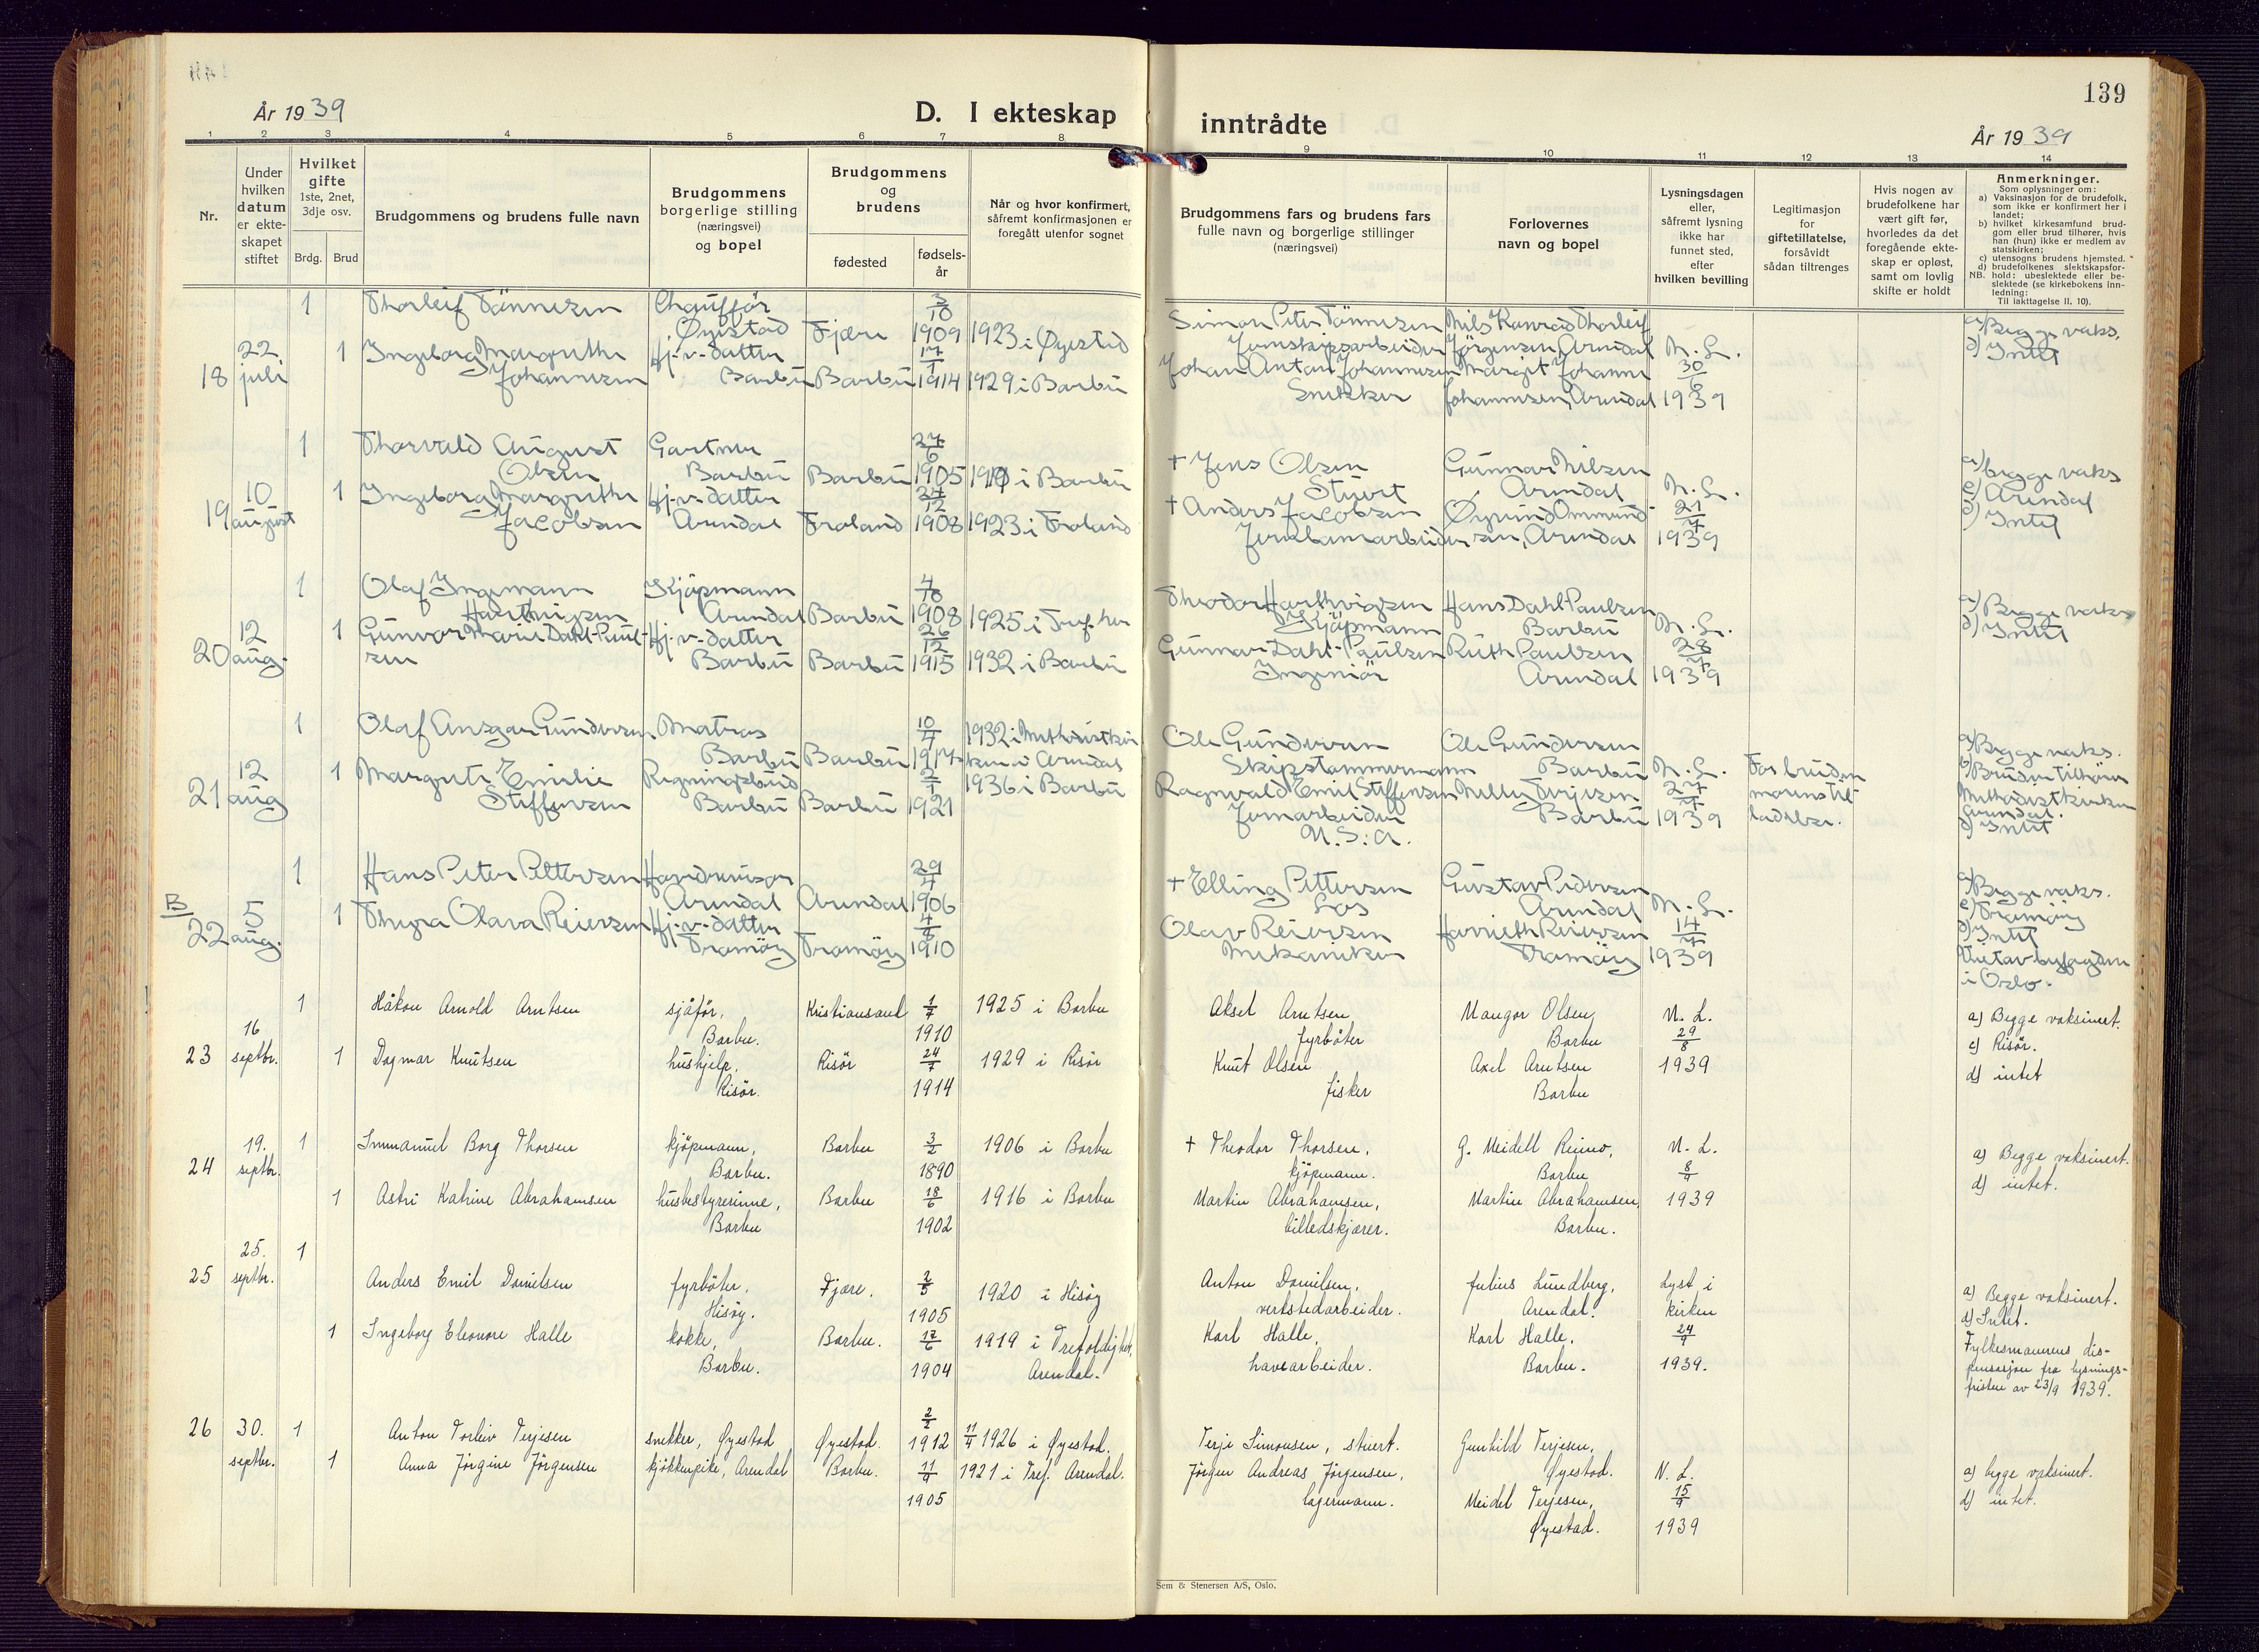 139
År 1939
D. I ekteskap
inntrådte
År 1939
1 2 3 4 5 6 7 8 9 10 11 12 13 14
Nr.
Under
hvilken
datum
er ekte-
skapet
stiftet
Hvilket
gifte
1ste, 2net,
3dje osv.
Brdg. Brud
Brudgommens og brudens fulle navn
Brudgommens
borgerlige stilling
(næringsvei)
og bopel
Brudgommens
og
brudens
fødested
fødsels-
år
Når og hvor konfirmert,
såfremt konfirmasjonen er
foregått utenfor sognet
Brudgommens fars og brudens fars
fulle navn og borgerlige stillinger
(næringsvei)
Forlovernes
navn og bopel
Lysningsdagen
eller,
såfremt lysning
ikke har
funnet sted,
efter
hvilken bevilling
Legitimasjon
for
giftetillatelse,
forsåvidt
sådan tiltrenges
Hvis nogen av
brudefolkene har
vært gift før,
hvorledes da det
foregående ekte-
skap er opløst,
samt om lovlig
skifte er holdt
Anmerkninger.
Som oplysninger om:
a) Vaksinasjon for de brudefolk,
som ikke er konfirmert her i
landet;
b) hvilket kirkesamfund brud-
gom eller brud tilhører, hvis
han (hun) ikke er medlem av
statskirken;
c) utensogns brudens hjemsted.
d) brudefolkenes slektskapsfor-
NB. hold: ubeslektede eller be-
slektede (se kirkebokens inn-
ledning:
Til iakttagelse II. 10).
18 22. juli
1 Thorleif Tönnesen Chaufför Øyestad Fjære 3/10 1909 1923 i Øyestad
Simon Peter Tönnesen Jernskipsarbeider Nils Konrad Thorleif Jörgensen, Arendal
1 Ingeborg Margrethe Johannesen Hj.v. datter Barbu Barbu 1914 1929 i Barbu
Johan Anton Johannesen Snekker Margit Johanne Johannesen, Arendal
N. L. 30/6 1939
a) Begge vaks.
d) Intet
19 10 august
1 Thorvald August Olsen Gartner Barbu Barbu 27/6 1905 i Barbu
† Jens Olsen Stuert Gunnar Nilsen Arendal
1 Ingeborg Margrethe Jacobsen Hj.-v.-datter Arendal Froland 27/12 1908 1923 i Froland
† Anders Jacobsen Jernbanearbeider Øyvind Ommundsen, Arendal
N. L. 21/7 1939
a) begge vaks
c) Arendal
d) Intet
20 12 aug.
1 Olaf Ingemann Harthvigsen Kjöpmann Arendal Barbu 4/10 1908 1925 i Tref.
Theodor Harthvigsen Kjöpmann Hans Dahl-Paulsen Barbu
1 Gunvor Marie Dahl-Paulsen Hj.-v.-datter Barbu Barbu 26/12 1915 1932 i Barbu
Gunnar Dahl-Paulsen Ingeniör Ruth Paulsen Arendal
N. L. 28/7 1939
a) Begge vaks
d) Intet
21 12 aug
1 Olaf Ansgar Gundersen Matros Barbu Barbu 10/7 1917 1932 i Methodistkirken i Arendal
Ole Gundersen Skipstømmermann Ole Gundersen Barbu
1 Margrete Emilie Steffensen Regningsbud Barbu Barbu 1921 1936 i Barbu
Ragnvald Emil Steffensen Jernarbeider U.S.A. Nelly Terjesen Barbu
N. L. 27/7 1939
For bruden morens tilladelse.
a) Begge vaks.
b) Bruden tilhører Methodistkirken Arendal.
d) Intet
B
22 5 aug.
1 Hans Peter Pettersen Arendal Arendal 29/7 1906
† Elling Pettersen Los Gustav Pedersen Arendal
1 Thyra Olava Reiersen Hj.-v.-datter Tromöy Tromöy 1910
Olav Reiersen Mekaniker Harrieth Reiersen Tromöy
N. L. 14/7 1939
a) Begge vaks.
c) Tromöy
d) Intet
Vietav byfogden i Oslo.
23 16 septbr.
1 Håkon Arnold Arntsen sjåför, Barbu. Kristiansand 1/7 1910 1925 i Barbu
Aksel Arntsen, fyrböter Mangor Olsen, Barbu
1 Dagmar Knutsen hushjelp, Risör. Risör 24/7 1914 1929 i Risör
Knut Olsen fisker Axel Arntsen Barbu
N. L. 29/8 1939
a) Begge vaksinert.
c) Risör.
d) intet
24 19. septbr.
1 Immanuel Borg Thorsen kjöpmann, Barbu. Barbu 3/2 1890 1906 i Barbu
† Theodor Thorsen, kjöpmann. G. Meidell Barbu
1 Astri Katrine Abrahamsen husbestyrerinne, Barbu Barbu 18/6 1902 1916 i Barbu
Martin Abrahamsen, billedskjærer. Martin Abrahamsen, Barbu.
N. L. 8/9 1939
a) Begge vaksinert.
d) intet.
25 25. septbr.
1 Anders Emil Danielsen fyrböter, Hisöy. Fjære. 2/5 1905 1920 i Hisöy
Anton Danielsen, verkstedarbeider. Julius Lundberg, Arendal.
1 Ingeborg Eleonore Halle kokke, Barbu. Barbu. 17/6 1904 1919 i Trefoldighet, Arendal.
Karl Halle, havearbeider. Karl Halle, Barbu.
Lyst i kirken 24/9 1939.
a) Begge vaksinert.
d) Intet.
Fylkesmannens dis-
pensasjon fra lysnings-
fristen av 23/9 1939.
26 30. septbr.
1 Anton Torleiv Terjesen snekker, Øyestad Øyestad. 2/2 1912 11/4 1926 i Øyestad.
Terje Simonsen, stuert. Gunhild Terjesen, Øyestad.
1 Anna Jörgine Jörgensen kjökkenpike, Arendal Barbu. 11/9 1905 1921 i Tref. Arendal.
Jörgen Andreas Jörgensen, lagermann. Meidel Terjesen, Øyestad.
N. L. 15/9 1939
a) begge vaksinert.
d) intet.
Sem & Stenersen A/S, Oslo.